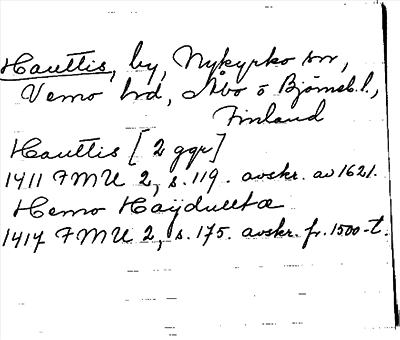 Hauttis, by, Nykyrko sn,
Vemo hd, Åbo o Björneb. l.,
Finland
Hauttis [2 ggr]
1411 FMU 2, s. 119. avskr. av 1621.
Hemo Haydullta
1417 FMU 2, s. 175. avskr. fr. 1500-t.